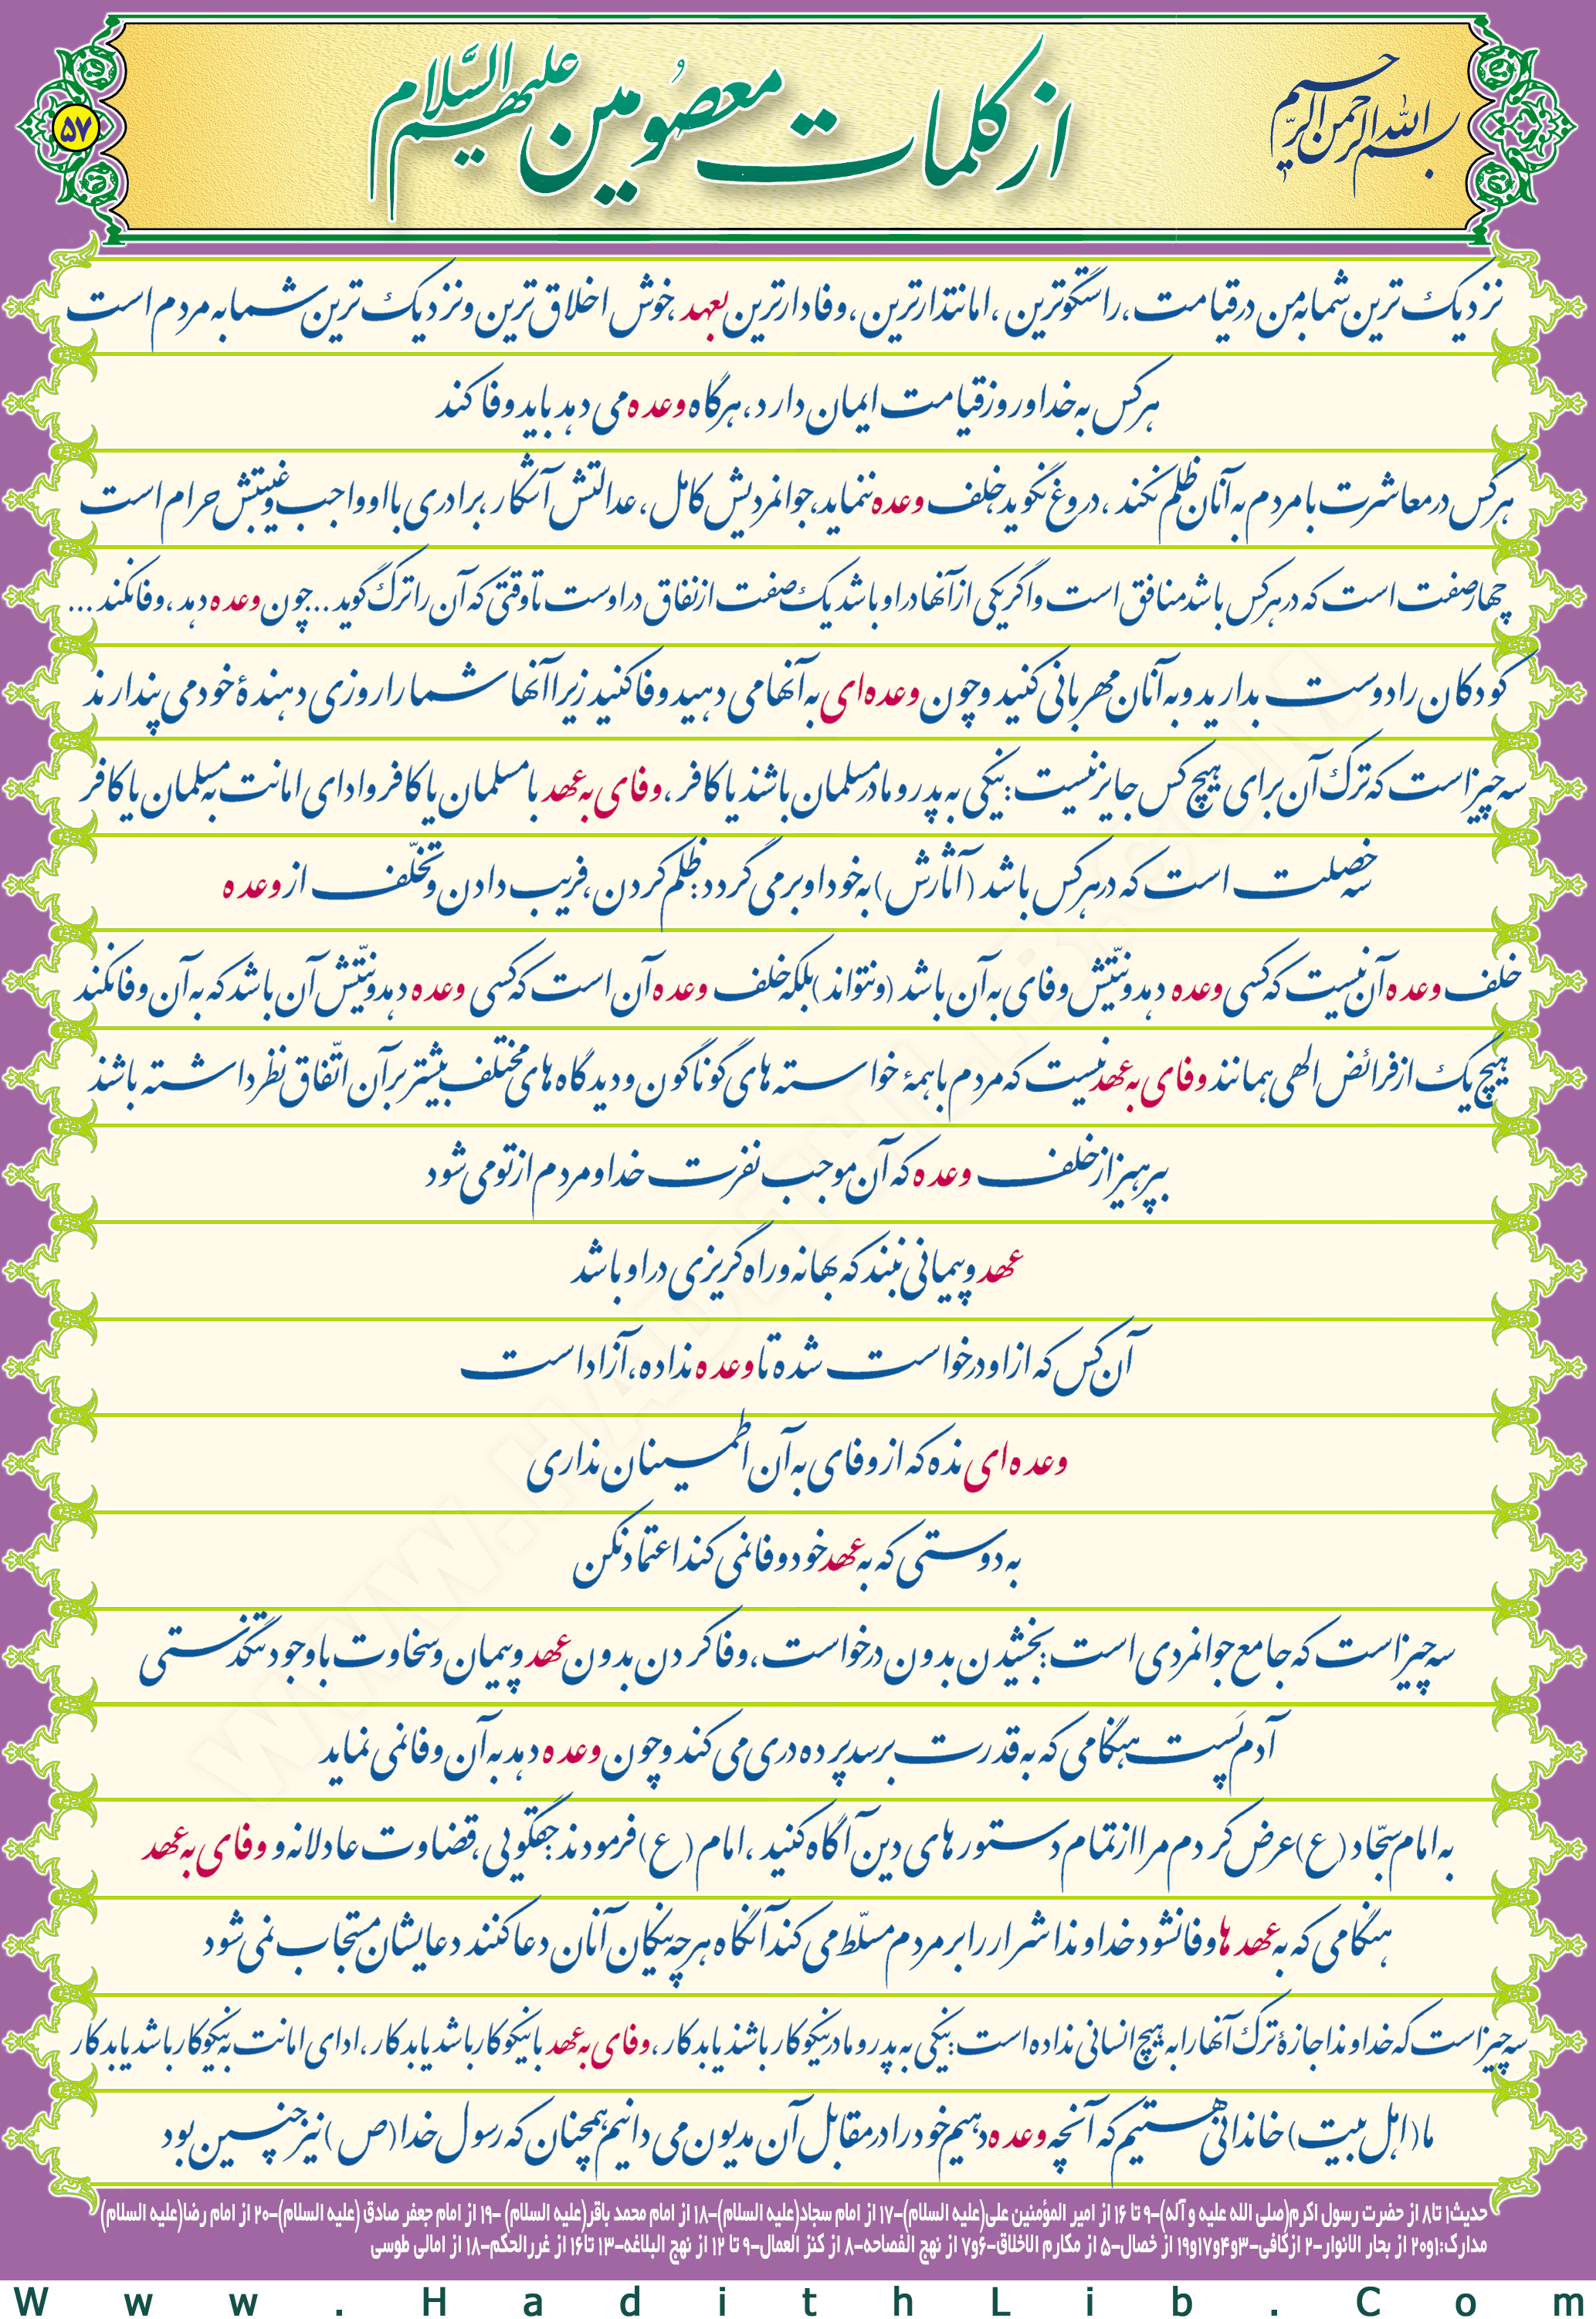 بسم الله الرحمن الرحیم
از کلمات معصومین علیهم السّلام
۵۷
نزدیک ترین شما به من در قیامت، راستگوترین، امانتدارترین، وفادارترین بعهد، خوش اخلاق ترین و نزدیک ترین شما به مردم است
هرکس به خدا و روز قیامت ایمان دارد، هرگاه وعده می دهد باید وفا کند
هرکس در معاشرت با مردم به آنان ظلم نکند، دروغ نگوید، خلف وعده ننماید، جوانمردیش کامل، عدالتش آشکار، برادری با او واجب و غیبتش حرام است
چهار صفت است که در هرکس باشد منافق است و اگر یکی از آنها در او باشد یک صفت از نفاق در اوست تا وقتی که آن را ترک گوید ... چون وعده دهد، وفا نکند ...
کودکان را دوست بدارید و به آنان مهربانی کنید و چون وعده ای به آنها می دهید وفا کنید زیرا آنها شما را روزی دهندهٔ خود می پندارند
سه چیز است که ترک آن برای هیچ کس جایز نیست: نیکی به پدر و مادر مسلمان باشند یا کافر، وفای به عهد با مسلمان یا کافر و ادای امانت به مسلمان یا کافر
سه خصلت است که در هرکس باشد (آثارش) به خود او برمی گردد: ظلم کردن، فریب دادن و تخلّف از وعده
خلف وعده آن نیست که کسی وعده دهد و نیّتش وفای به آن باشد (و نتواند) بلکه خلف وعده آن است که کسی وعده دهد و نیّتش آن باشد که به آن وفا نکند
هیچ یک از فرائض الهی همانند وفای به عهد نیست که مردم با همهٔ خواسته های گوناگون و دیدگاه های مختلف بیشتر بر آن اتّفاق نظر داشته باشند
بپرهیز از خلف وعده که آن موجب نفرت خدا و مردم از تو می شود
عهد و پیمانی نبند که بهانه و راه گریزی در او باشد
آن کس که از او درخواست شده تا وعده نداده، آزاد است
وعده ای نده که از وفای به آن اطمینان نداری
به دوستی که به عهد خود وفا نمی کند اعتماد نکن
سه چیز است که جامع جوانمردی است: بخشیدن بدون درخواست، وفا کردن بدون عهد و پیمان و سخاوت با وجود تنگدستی
آدم پَست هنگامی که به قدرت برسد پرده دری می کند و چون وعده دهد به آن وفا نمی نماید
به امام سجّاد (ع) عرض کردم مرا از تمام دستورهای دین آگاه کنید، امام (ع) فرمودند: حقگویی، قضاوت عادلانه و وفای به عهد
هنگامی که به عهد ها وفا نشود خداوند اشرار را بر مردم مسلّط می کند آنگاه هر چه نیکان آنان دعا کنند دعایشان مستجاب نمی شود
سه چیز است که خداوند اجازهٔ ترک آنها را به هیچ انسانی نداده است: نیکی به پدر و مادر نیکوکار باشند یا بدکار، وفای به عهد با نیکوکار باشد یا بدکار، ادای امانت به نیکوکار باشد یا بدکار
ما (اهل بیت) خاندانی هستیم که آنچه وعده دهیم خود را در مقابل آن مدیون می دانیم همچنان که رسول خدا (ص) نیز چنین بود
حدیث۱ تا۸ از حضرت رسول اکرم(صلی الله علیه و آله)-۹ تا ۱۶ از امیر المؤمنین علی(علیه السلام)-۱۷ از امام سجاد(علیه السلام)-۱۸ از امام محمد باقر(علیه السلام) -۱۹ از امام جعفر صادق (علیه السلام)-۲۰ از امام رضا(علیه السلام)
مدارک:۱و۲۰ از بحار الانوار-۲ ازکافی-۳و۴و۱۷و۱۹ از خصال-۵ از مکارم الاخلاق-۶و۷ از نهج الفصاحه-۸ از کنز العمال-۹ تا ۱۲ از نهج البلاغه-۱۳ تا۱۶ از غررالحکم-۱۸ از امالی طوسی
Www.HadithLib.Com